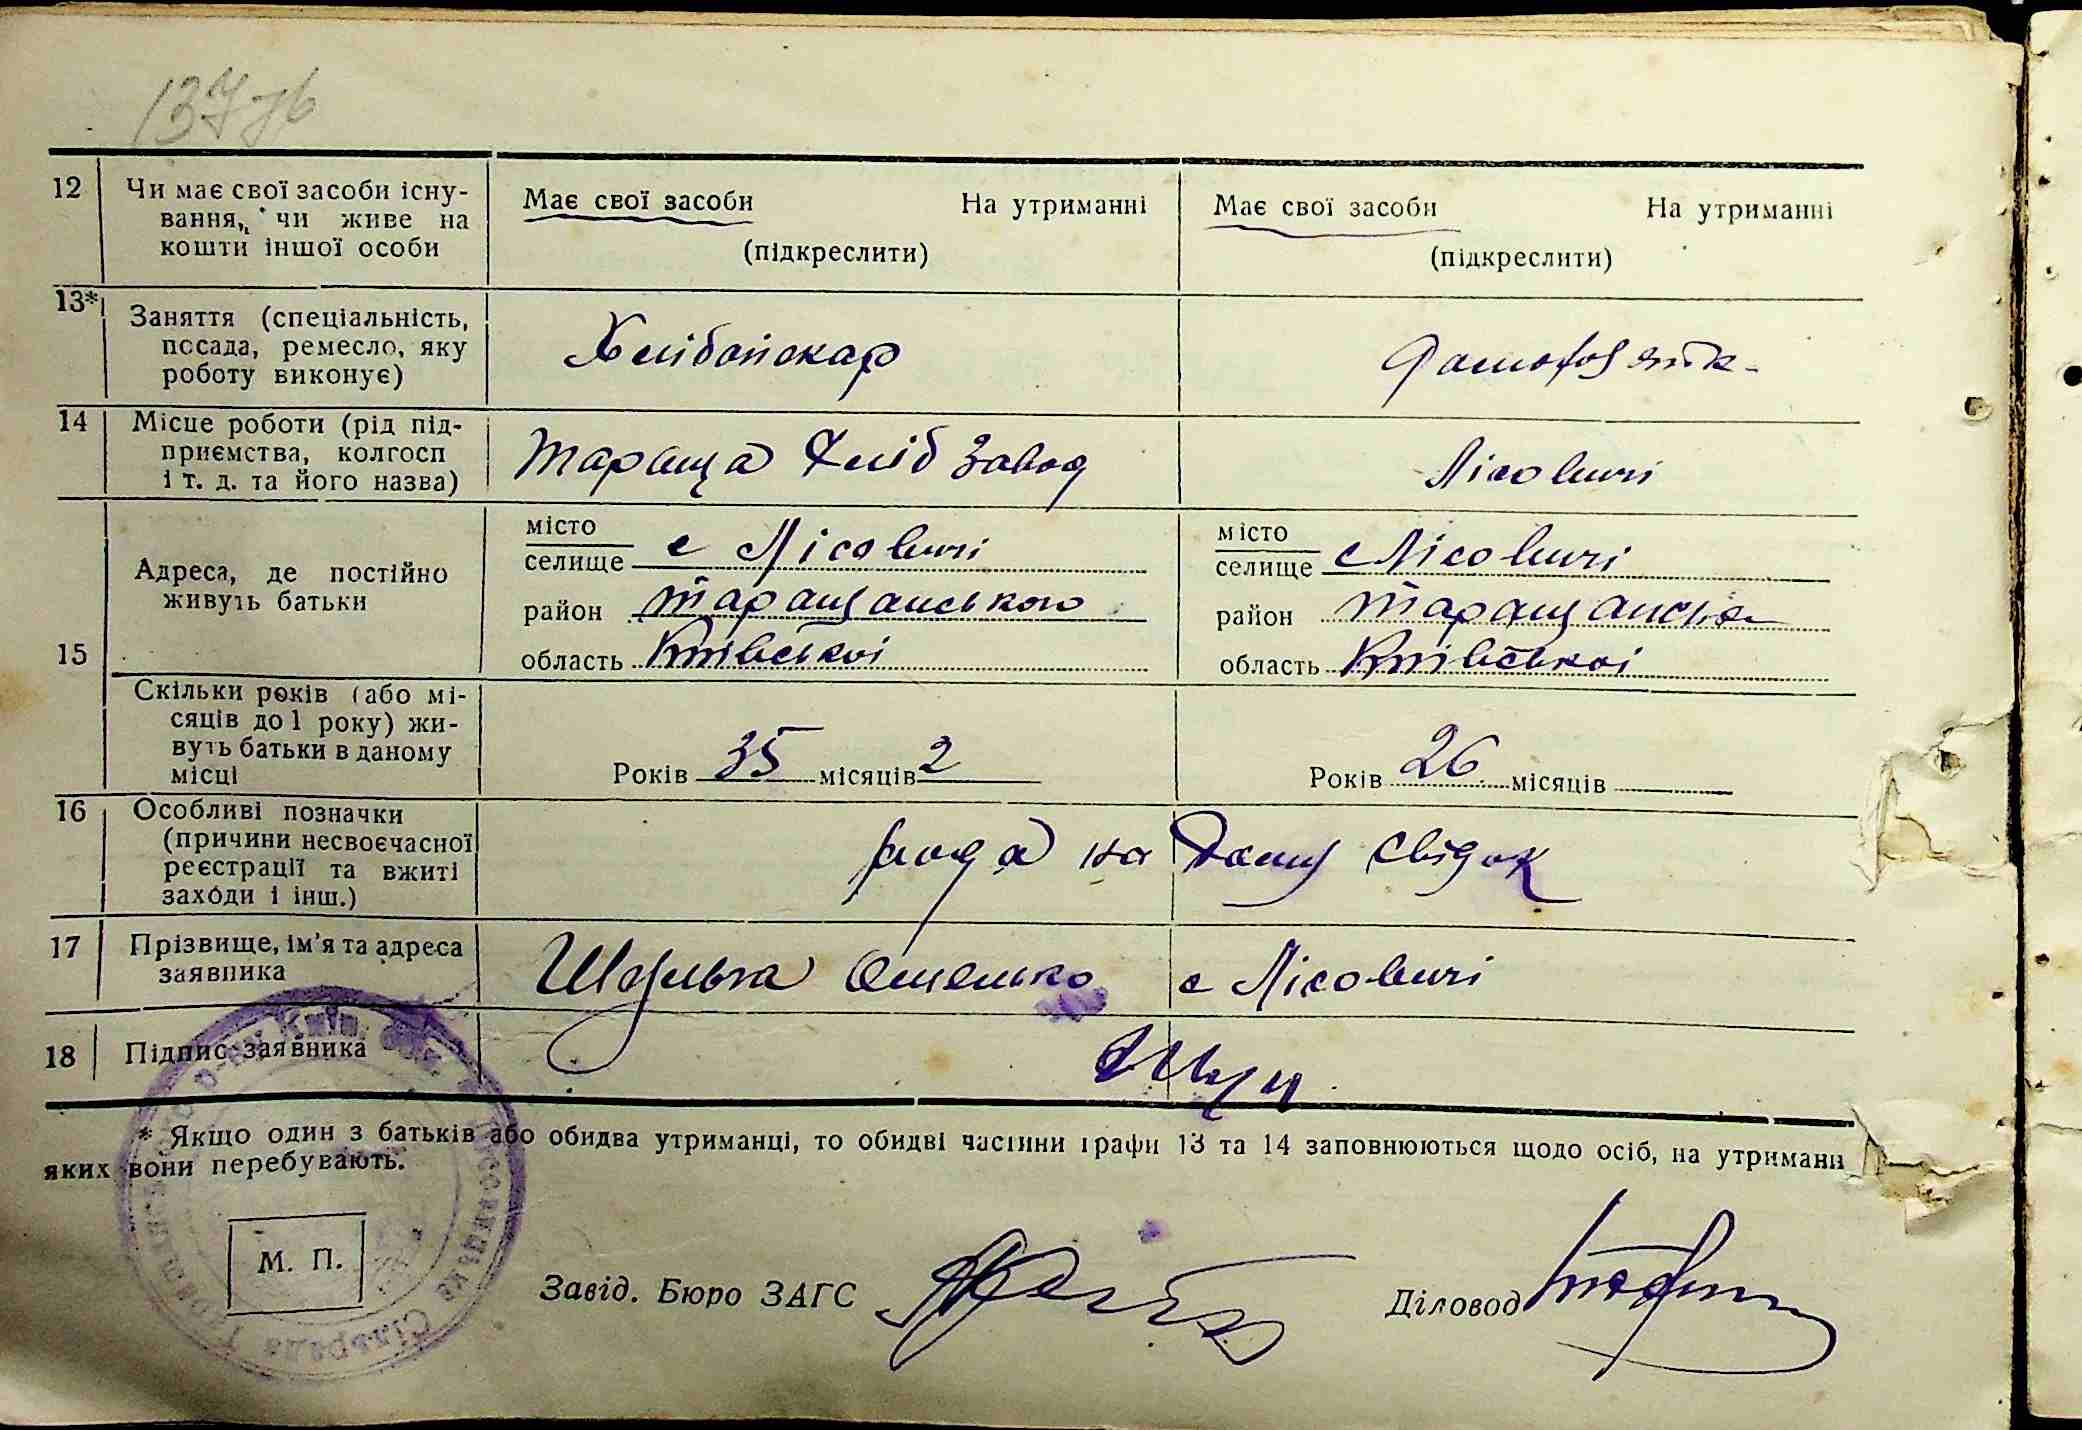 137 зв
12 Чи має свої засоби існу-
вання, чи живе на
кошти іншої особи
Має свої засоби На утриманні
(підкреслити)
Має свої засоби На утриманні
(підкреслити)
13* Заняття (спеціальність,
посада, ремесло, яку
роботу виконує)
Хлібопекар
14 Місце роботи (рід під-
приємства, колгосп
і т. д. та його назва)
Тараща Хліб завод
Лісовичі
15 Адреса, де постійно
живуть батьки
місто
селище с Лісовичі
район Таращанського
область Київської
місто
селище с Лісовичі
район
область Київської
Скільки років (або мі-
сяців до 1 року) жи-
вуть батьки в даному
місці
Років 35 місяців 2
Років 26 місяців
16 Особливі позначки
(причини несвоєчасної
реєстрації та вжиті
заходи і інш.)
на свідок
17 Прізвище, ім'я та адреса
заявника
Шульга Омелько с Лісовичі
18 Підпис заявника
* Якщо один з батьків або обидва утриманці, то обидві частини графи 13 та 14 заповнюються щодо осіб, на утриманні
яких вони перебувають.
М. П.
Завід. Бюро ЗАГС
Діловод